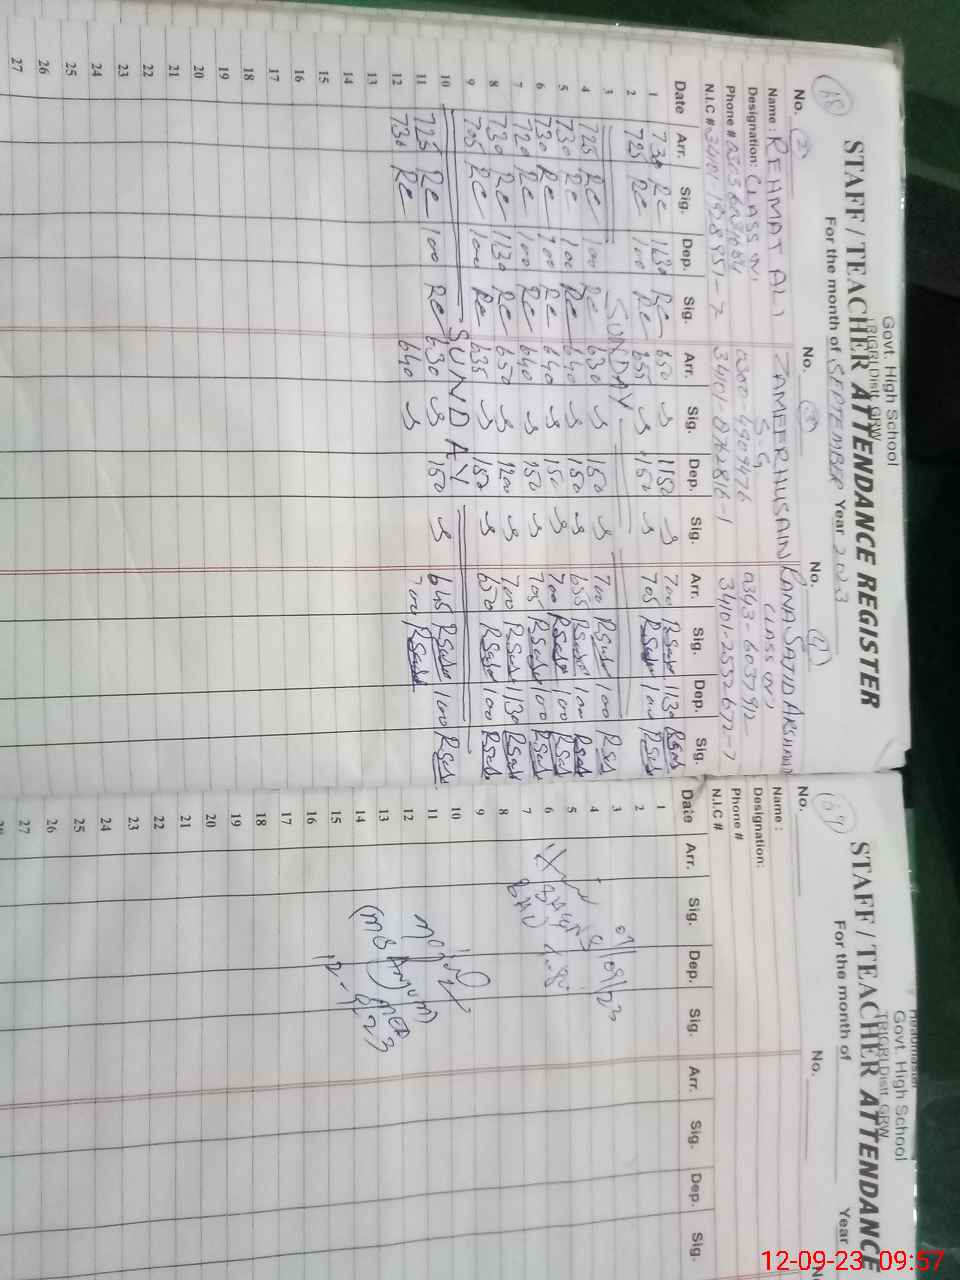 Govt. High School
TRIGRI Distt. GRW
STAFF / TEACHER ATTENDANCE REGISTER
For the month of SEPTEMBER Year 2023
68
No. 2 No. 3 No. 4
Name : REHMAT ALI ZAMEER HUSAIN RANA SAJID ARSHAD
Designation: CLASS IV S.G CLASS IV
Phone # 0300-4909476 0343-6037912
N.I.C # 34101-1928951-7 34101-0762816-1 34101-2552672-7
Date Arr. Sig. Dep. Sig. Arr. Sig. Dep. Sig. Arr. Sig. Dep. Sig.
1 730 Re 1130 Re 650 1150 700 Rsajid 1130 Rsajid
2 725 Re 100 Re 655 150 705 Rsajid 100 Rsajid
3 SUNDAY
4 725 Re 100 Re 630 150 700 Rsajid 100 Rsajid
5 730 Re 100 Re 640 150 655 Rsajid 100 Rsajid
6 730 Re 100 Re 640 150 700 Rsajid 100 Rsajid
7 720 Re 100 Re 640 150 705 Rsajid 100 Rsajid
8 730 Re 1130 Re 650 1200 700 Rsajid 1130 Rsajid
9 705 Re 100 Re 635 150 650 Rsajid 100 Rsajid
10 SUNDAY
11 725 Re 100 Re 630 150 645 Rsajid 100 Rsajid
12 730 Re 640 700 Rsajid
13
14
15
16
17
18
19
20
21
22
23
24
25
26
27
Headmaster
Govt. High School
TRIGRI Distt. GRW
STAFF / TEACHER ATTENDANCE
For the month of Year
69
No. No.
Name :
Designation:
Phone #
N.I.C #
Date Arr. Sig. Dep. Sig. Arr. Sig. Dep. Sig.
1
2
3
4
5
6
7
8
9
10
11
12
13
14
15
16
17
18
19
20
21
22
23
24
25
26
27
28
12-09-23 09:57